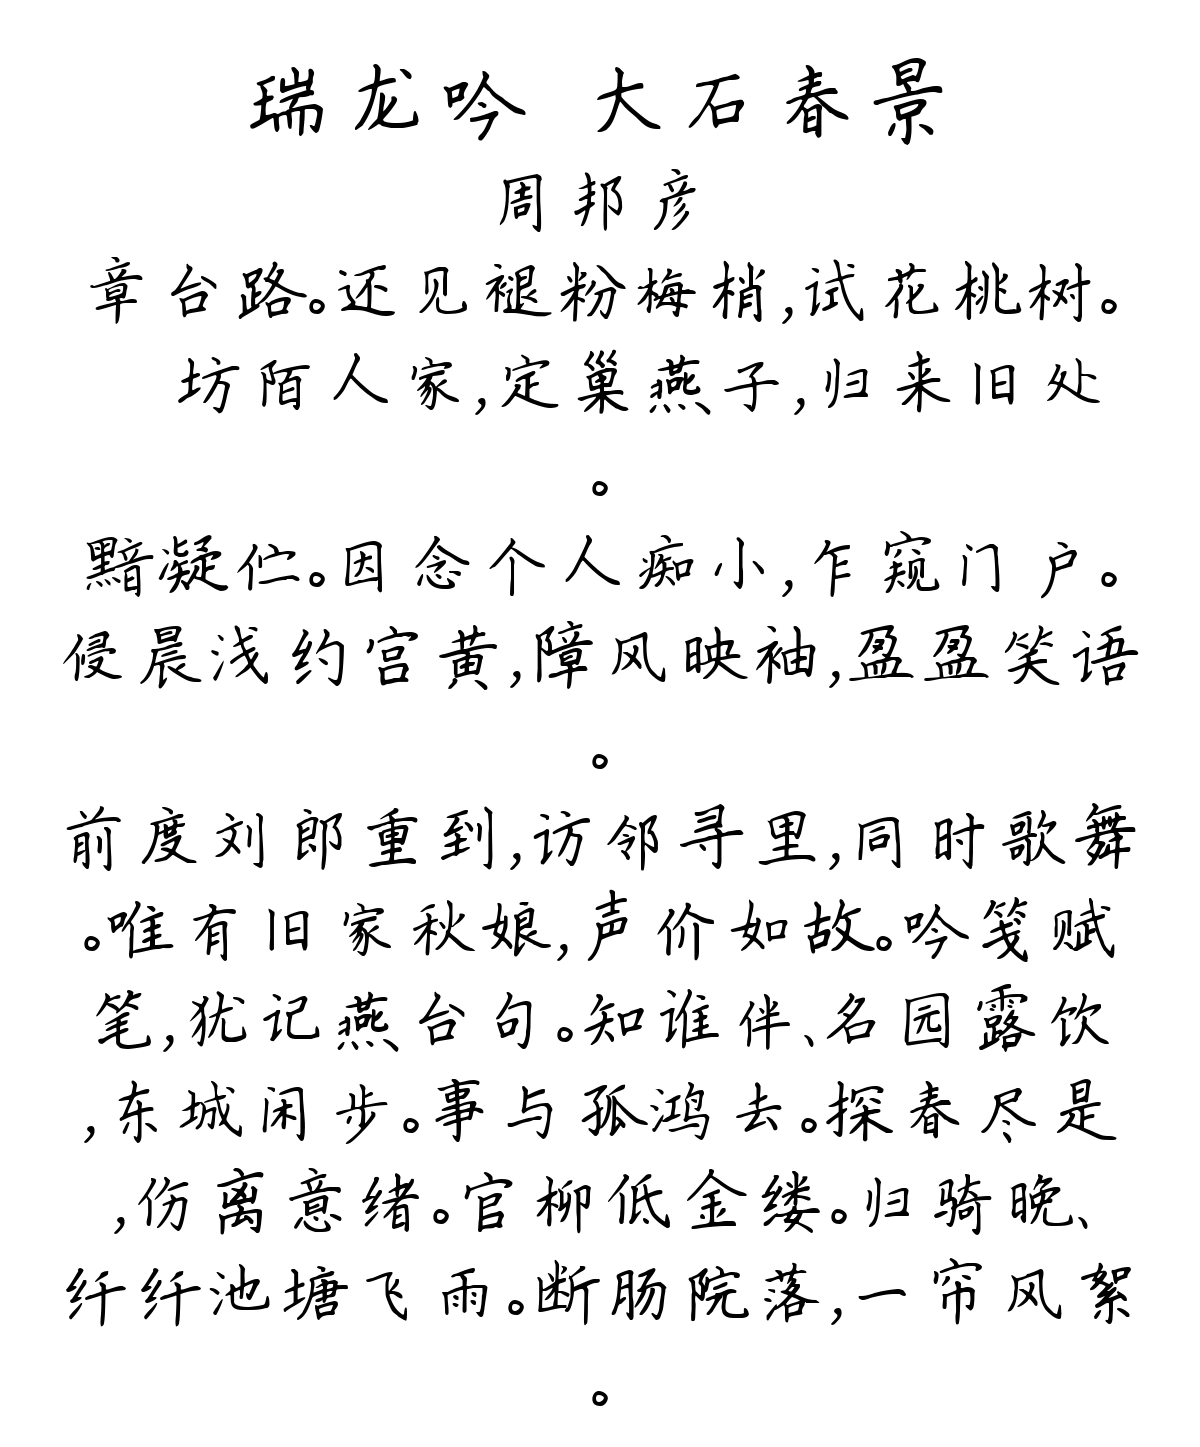 瑞龙吟 大石春景
周邦彦
章台路。还见褪粉梅梢,试花桃树。
坊陌人家,定巢燕子,归来旧处
。
黯凝伫。因念个人痴小,乍窥门户。
侵晨浅约宫黄,障风映袖,盈盈笑语
。
前度刘郎重到,访邻寻里,同时歌舞
。唯有旧家秋娘,声价如故。吟笺赋
笔,犹记燕台句。知谁伴、名园露饮
,东城闲步。事与孤鸿去。探春尽是
,伤离意绪。官柳低金缕。归骑晚、
纤纤池塘飞雨。断肠院落,一帘风絮
。